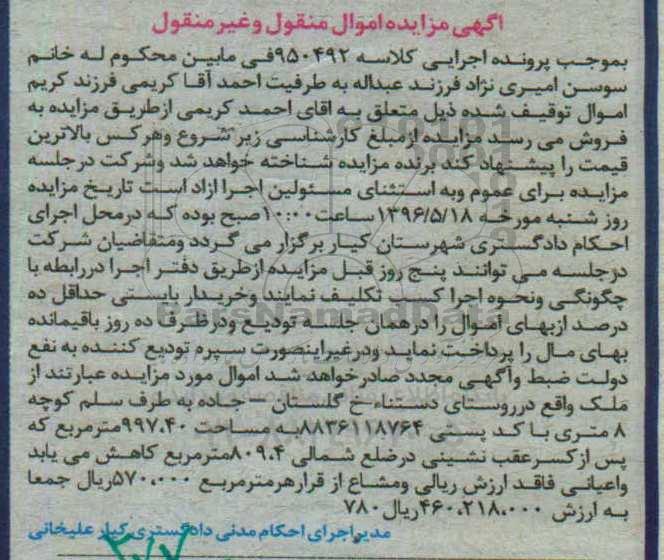 اگهی مزایده اموال منقول و غیر منقول
بموجب پرونده اجرایی کلاسه ۹۵۰۴۹۲فی مابین محکوم له خانم
سوسن امیری نژاد فرزند عبداله به طرفیت احمد آقا کریمی فرزند کریم
اموال توقیف شده ذیل متعلق به اقای احمد کریمی ازطریق مزایده به
فروش می رسد مزایده ازمبلغ کارشناسی زیر شروع وهرکس بالاترین
قیمت را پیشنهاد کند برنده مزایده شناخته خواهد شد وشرکت درجلسه
مزایده برای عموم وبه استثنای مسئولین اجرا ازاد است تاریخ مزایده
روز شنبه مورخه ۱۳۹۶/۵/۱۸ساعت۱۰:۰۰صبح بوده که درمحل اجرای
احکام دادگستری شهرستان کیار برگزار می گردد ومتقاضیان شرکت
درجلسه می توانند پنج روز قبل مزایده ازطریق دفتر اجرا دررابطه با
چگونگی ونحوه اجرا کسب تکلیف نمایند وخریدار بایستی حداقل ده
درصد ازبهای اموال را درهمان جلسه تودیع ودرظرف ده روز باقیمانده
بهای مال را پرداخت نماید ودرغیراینصورت سپره تودیع کننده به نفع
دولت ضبط وآگهی مجدد صادرخواهد شد اموال مورد مزایده عبارتند از
ملک واقع درروستای دستناء-خ گلستان –جاده به طرف سلم کوچه
۸ متری با کد پستی ۸۸۳۶۱۱۸۷۶۴به مساحت ۹۹۷.۴۰مترمربع که
پس ازکسرعقب نشینی درضلع شمالی ۸۰۹.۴مترمربع کاهش می یابد
واعیانی فاقد ارزش ریالی ومشاع از قرارهرمترمربع ۵۷۰،۰۰۰ریال جمعا
به ارزش ۴۶۰،۲۱۸،۰۰۰ریال۷۸۰
مدیراجرای احکام مدنی دادگستری کیار علیخانی
ParsNamadData